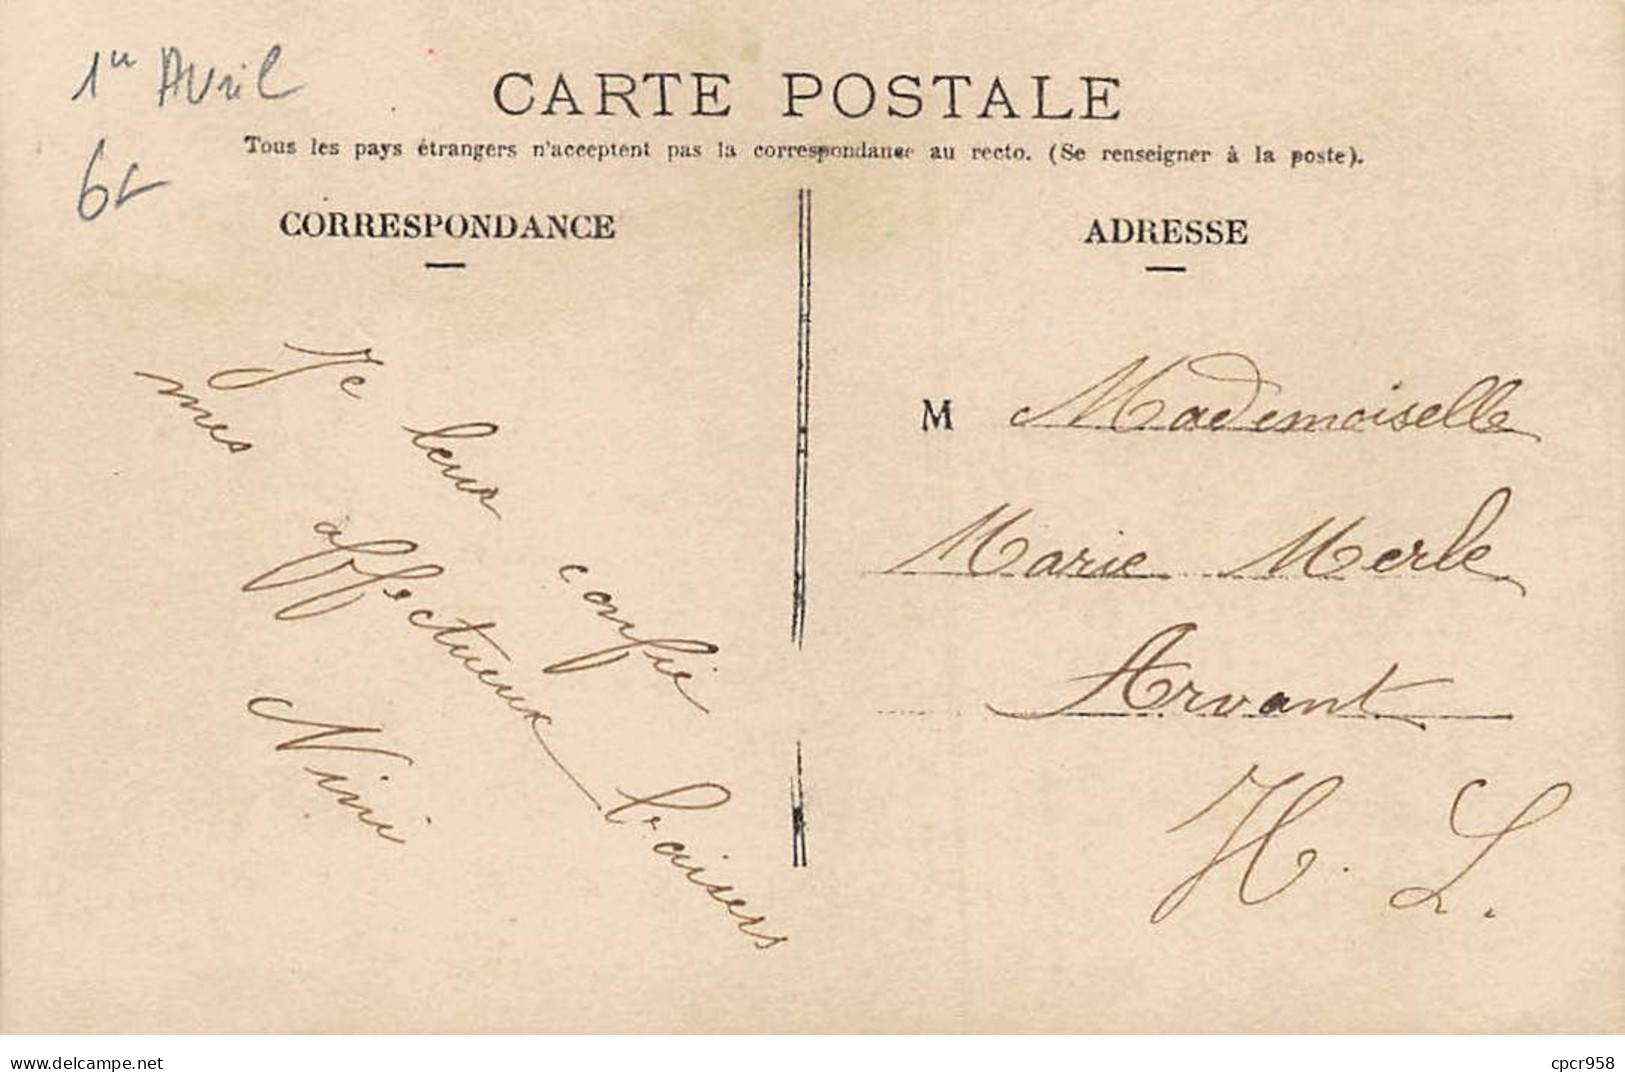 1er Avril
6€
CARTE POSTALE
Tous les pays étrangers n'acceptent pas la correspondance au recto. (Se renseigner à la poste).
CORRESPONDANCE
Je leur confie
mes affectueux baisers
Nini
ADRESSE
M Mademoiselle
Marie Merle
Arvant
H. L.
www.delcampe.net
cpcr958